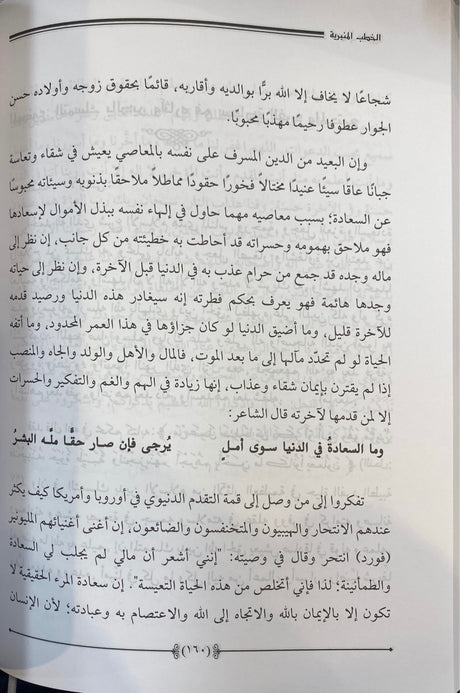 الخطب المنبرية
شجاعًا لا يخاف إلا الله برًّا بوالديه وأقاربه، قائمًا بحقوق زوجه وأولاده حسن
الجوار عطوفا رحيمًا مهذبًا محبوبًا.
وإن البعيد من الدين المسرف على نفسه بالمعاصي يعيش في شقاء وتعاسة
جبانًا عاقًا سيئًا عنيدًا مختالاً فخورًا حقودًا مماطلاً ملاحقًا بذنوبه وسيئاته محبوسًا
عن السعادة؛ بسبب معاصيه مهما حاول في إلهاء نفسه ببذل الأموال لإسعادها
فهو ملاحق بهمومه وحسراته قد أحاطت به خطيئته من كل جانب، إن نظر إلى
ماله وجده قد جمع من حرام عذب به في الدنيا قبل الآخرة، وإن نظر إلى حياته
وجدها هائمة فهو يعرف بحكم فطرته إنه سيغادر هذه الدنيا ورصيد قدمه
للآخرة قليل، وما أضيق الدنيا لو كان جزاؤها في هذا العمر المحدود، وما أتفه
الحياة لو لم تحدّد مآلها إلى ما بعد الموت، فالمال والأهل والولد والجاه والمنصب
إذا لم يقترن بإيمان شقاء وعذاب، إنها زيادة في الهم والغم والتفكير والحسرات
إلا لمن قدمها لآخرته قال الشاعر:
وما السعادةُ في الدنيا سوى أملٍ يُرجى فإن صار حقًّا ملّه البشرُ
تفكروا إلى من وصل إلى قمة التقدم الدنيوي في أوروبا وأمريكا كيف يكثر
عندهم الانتحار والهيبيون والمتخنفسون والضائعون. إن أغنى أغنيائهم المليونير
(فورد) انتحر وقال في وصيته: "إنني أشعر أن مالي لم يجلب لي السعادة
والطمأنينة؛ لذا فإني أتخلص من هذه الحياة التعيسة". إن سعادة المرء الحقيقية لا
تكون إلا بالإيمان بالله والاتجاه إلى الله والاعتصام به وعبادته؛ لأن الإنسان
(١٦٠)